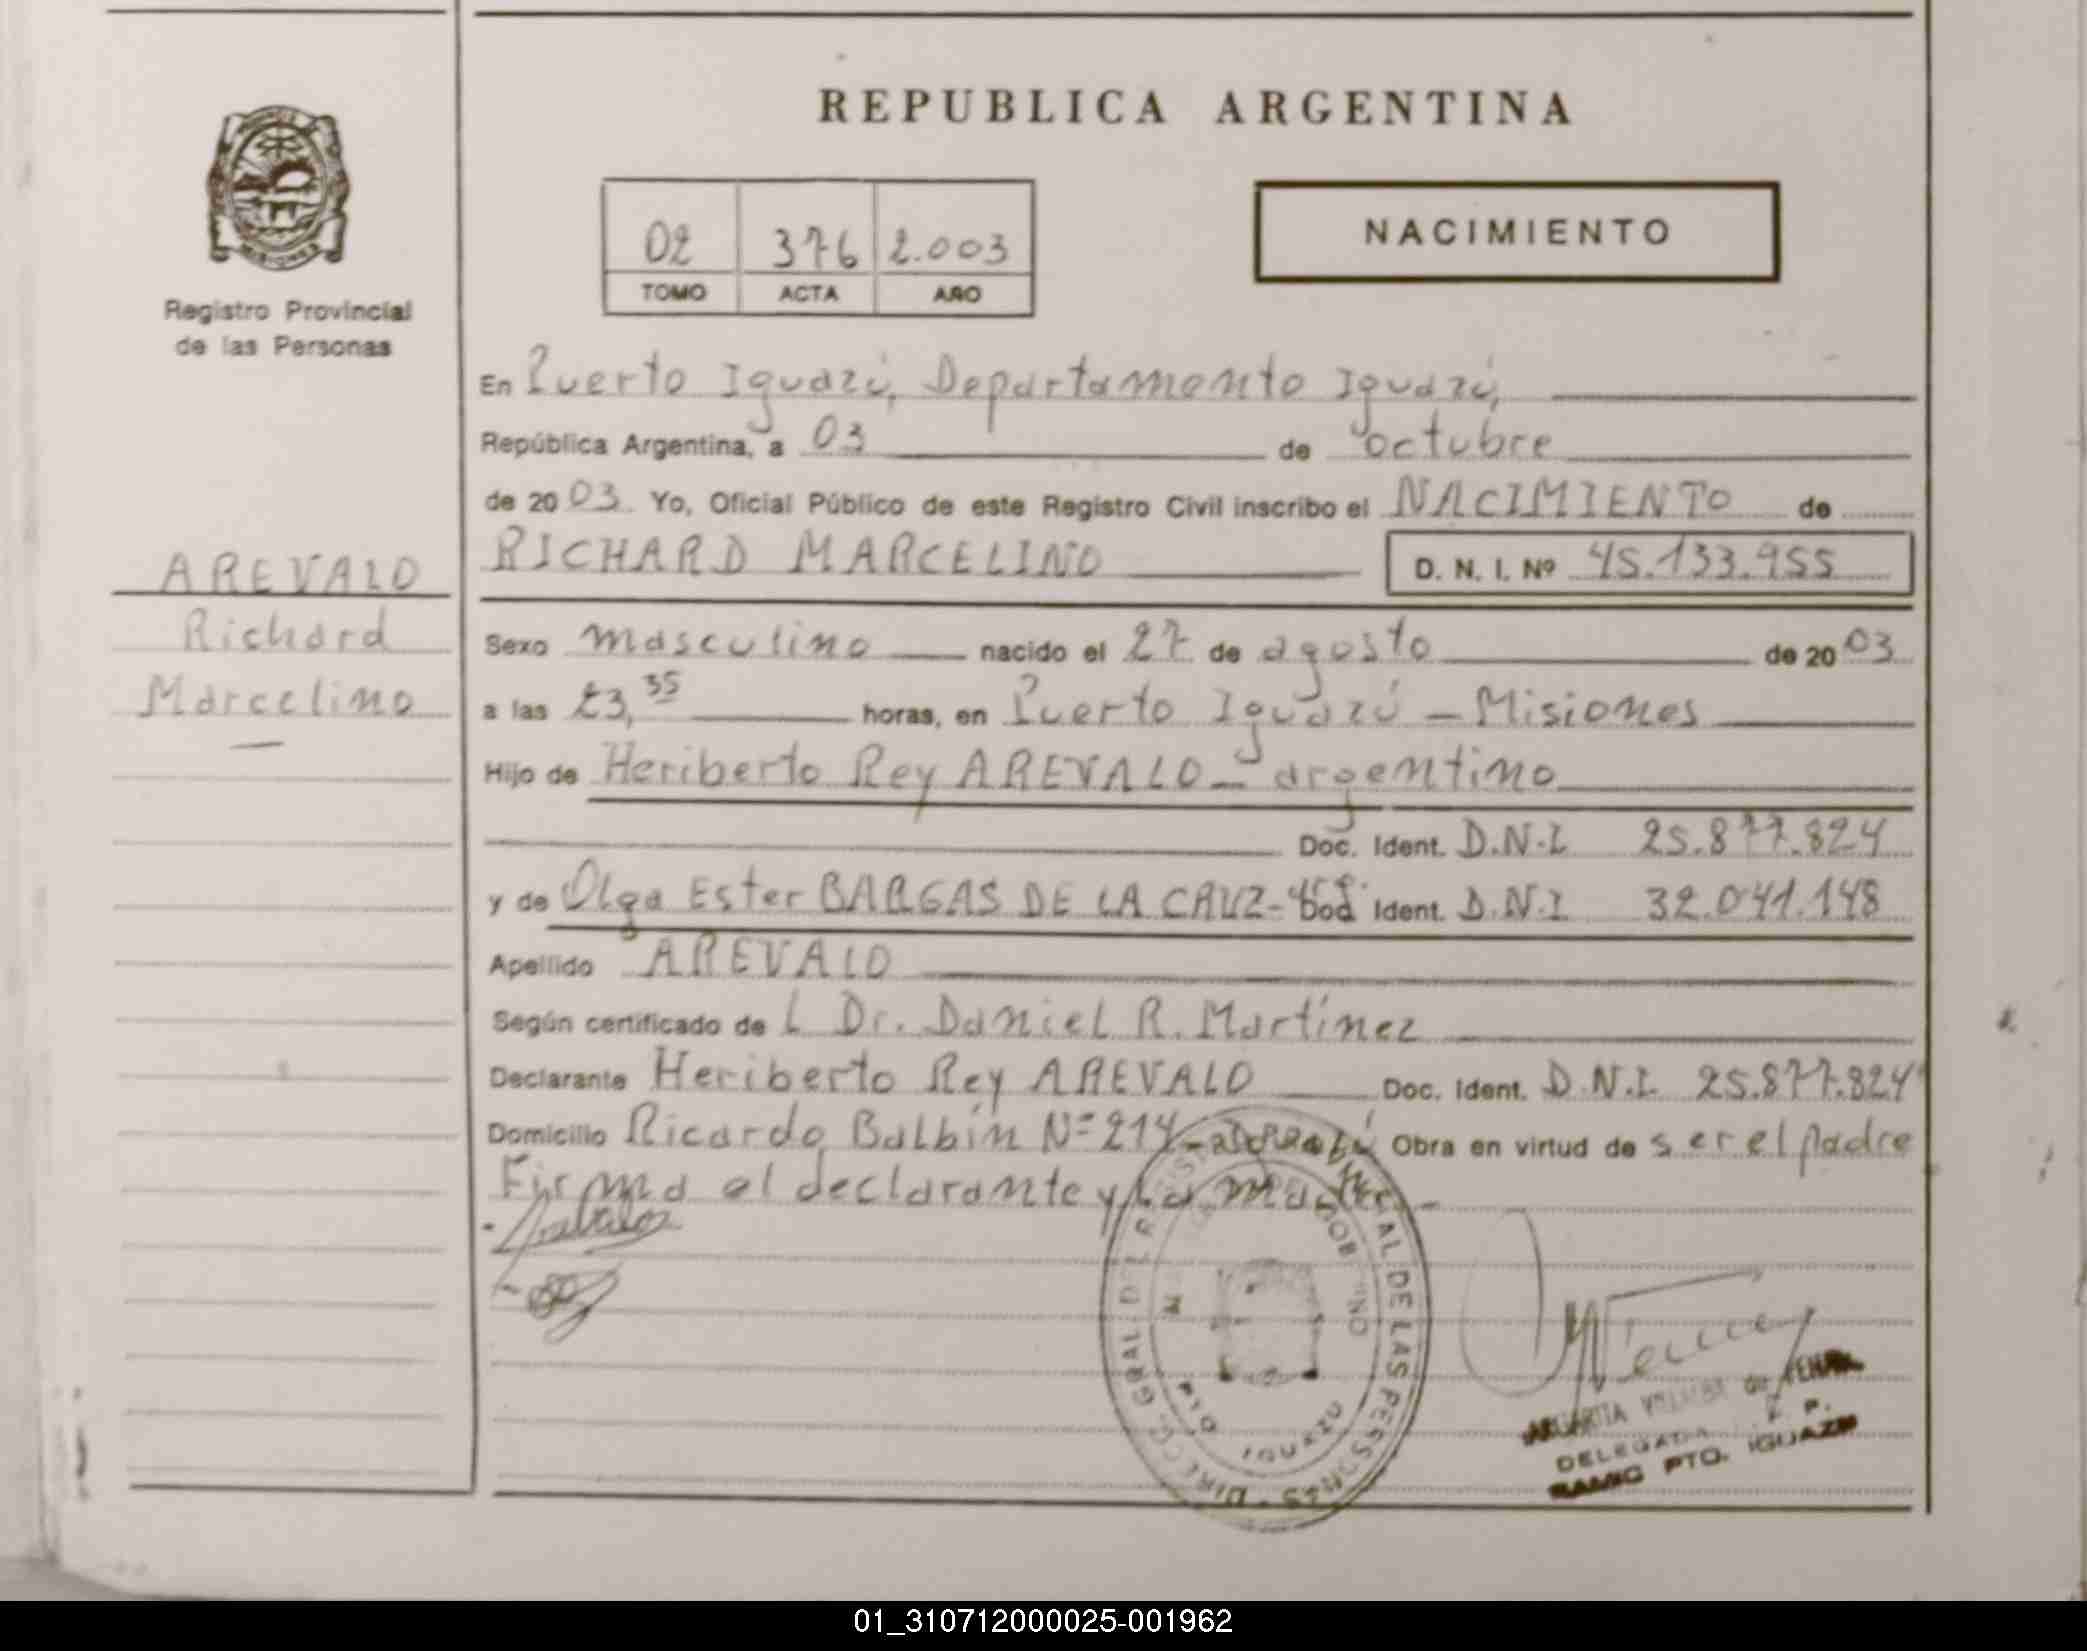 REPUBLICA ARGENTINA
NACIMIENTO
02 376 2.003
TOMO ACTA AÑO
Registro Provincial
de las Personas
AREVALO
Richard
Marcelino
En Puerto Iguazú, Departamento Iguazú,
República Argentina, a 03 de octubre
de 2003. Yo, Oficial Público de este Registro Civil inscribo el NACIMIENTO de
RICHARD MARCELINO D. N. I. Nº 45.133.955
Sexo masculino nacido el 27 de agosto de 2003
a las 23,35 horas, en Puerto Iguazú - Misiones
Hijo de Heriberto Rey AREVALO - argentino
Doc. Ident. D.N.I. 25.877.824
y de Olga Ester BARGAS DE LA CRUZ - Doc. Ident. D.N.I 32.041.148
Apellido AREVALO
Según certificado del Dr. Daniel R. Martínez
Declarante Heriberto Rey AREVALO Doc. Ident. D.N.I. 25.877.824
Domicilio Ricardo Balbín Nº 214 - Obra en virtud de ser el padre
Firma el declarante y la madre. -
DIRECC. GRAL. DE LAS PERSONAS
IGUAZU
DELEGADA R. P.
PTO. IGUAZU
01_310712000025-001962